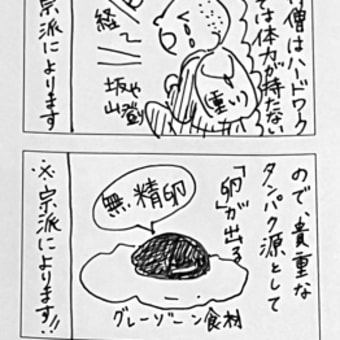 僧はハードワーク
では体力が持たない
重い
経〜
坂や
山登
宗派によります
ので、貴重な
タンパク源として
「卵」が出る
無精卵
グレーゾーン食材
※宗派によります!!